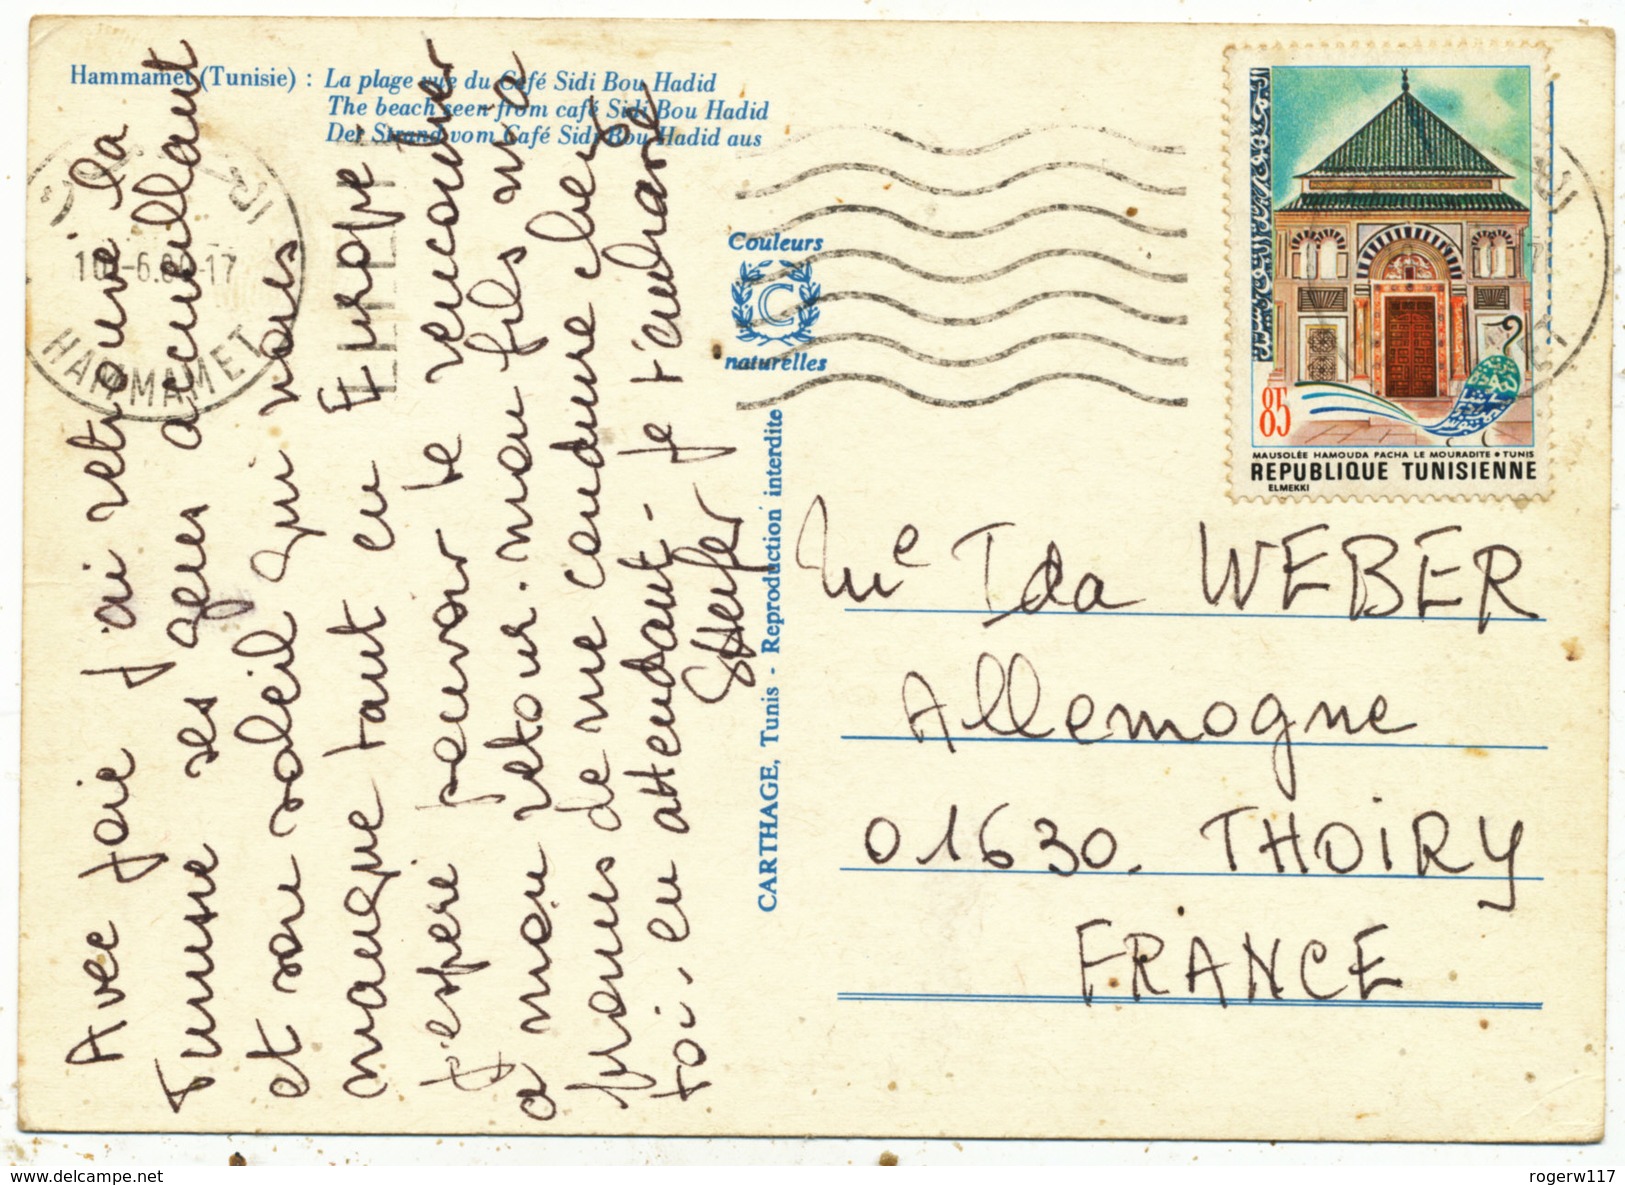 Hammamet (Tunisie) : La plage vue du Café Sidi Bou Hadid
The beach seen from café Sidi Bou Hadid
Der Strand vom Café Sidi Bou Hadid aus
HAMMAMET
Couleurs
C
naturelles
CARTHAGE, Tunis - Reproduction interdite
85
MAUSOLÉE HAMOUDA PACHA LE MOURADITE • TUNIS
REPUBLIQUE TUNISIENNE
ELMEKKI
Avec joie j'ai retrouvé la
Tunisie ses gens accueillant
et son soleil qui nous
manque tant en Europe
j'espère pouvoir te rencontrer
a mon retour. mon fils m'a
promis de me conduire chez
toi. en attendant - je t'embarse
Mme Ida WEBER
Allemogne
01630. THOIRY
FRANCE
rogerw117